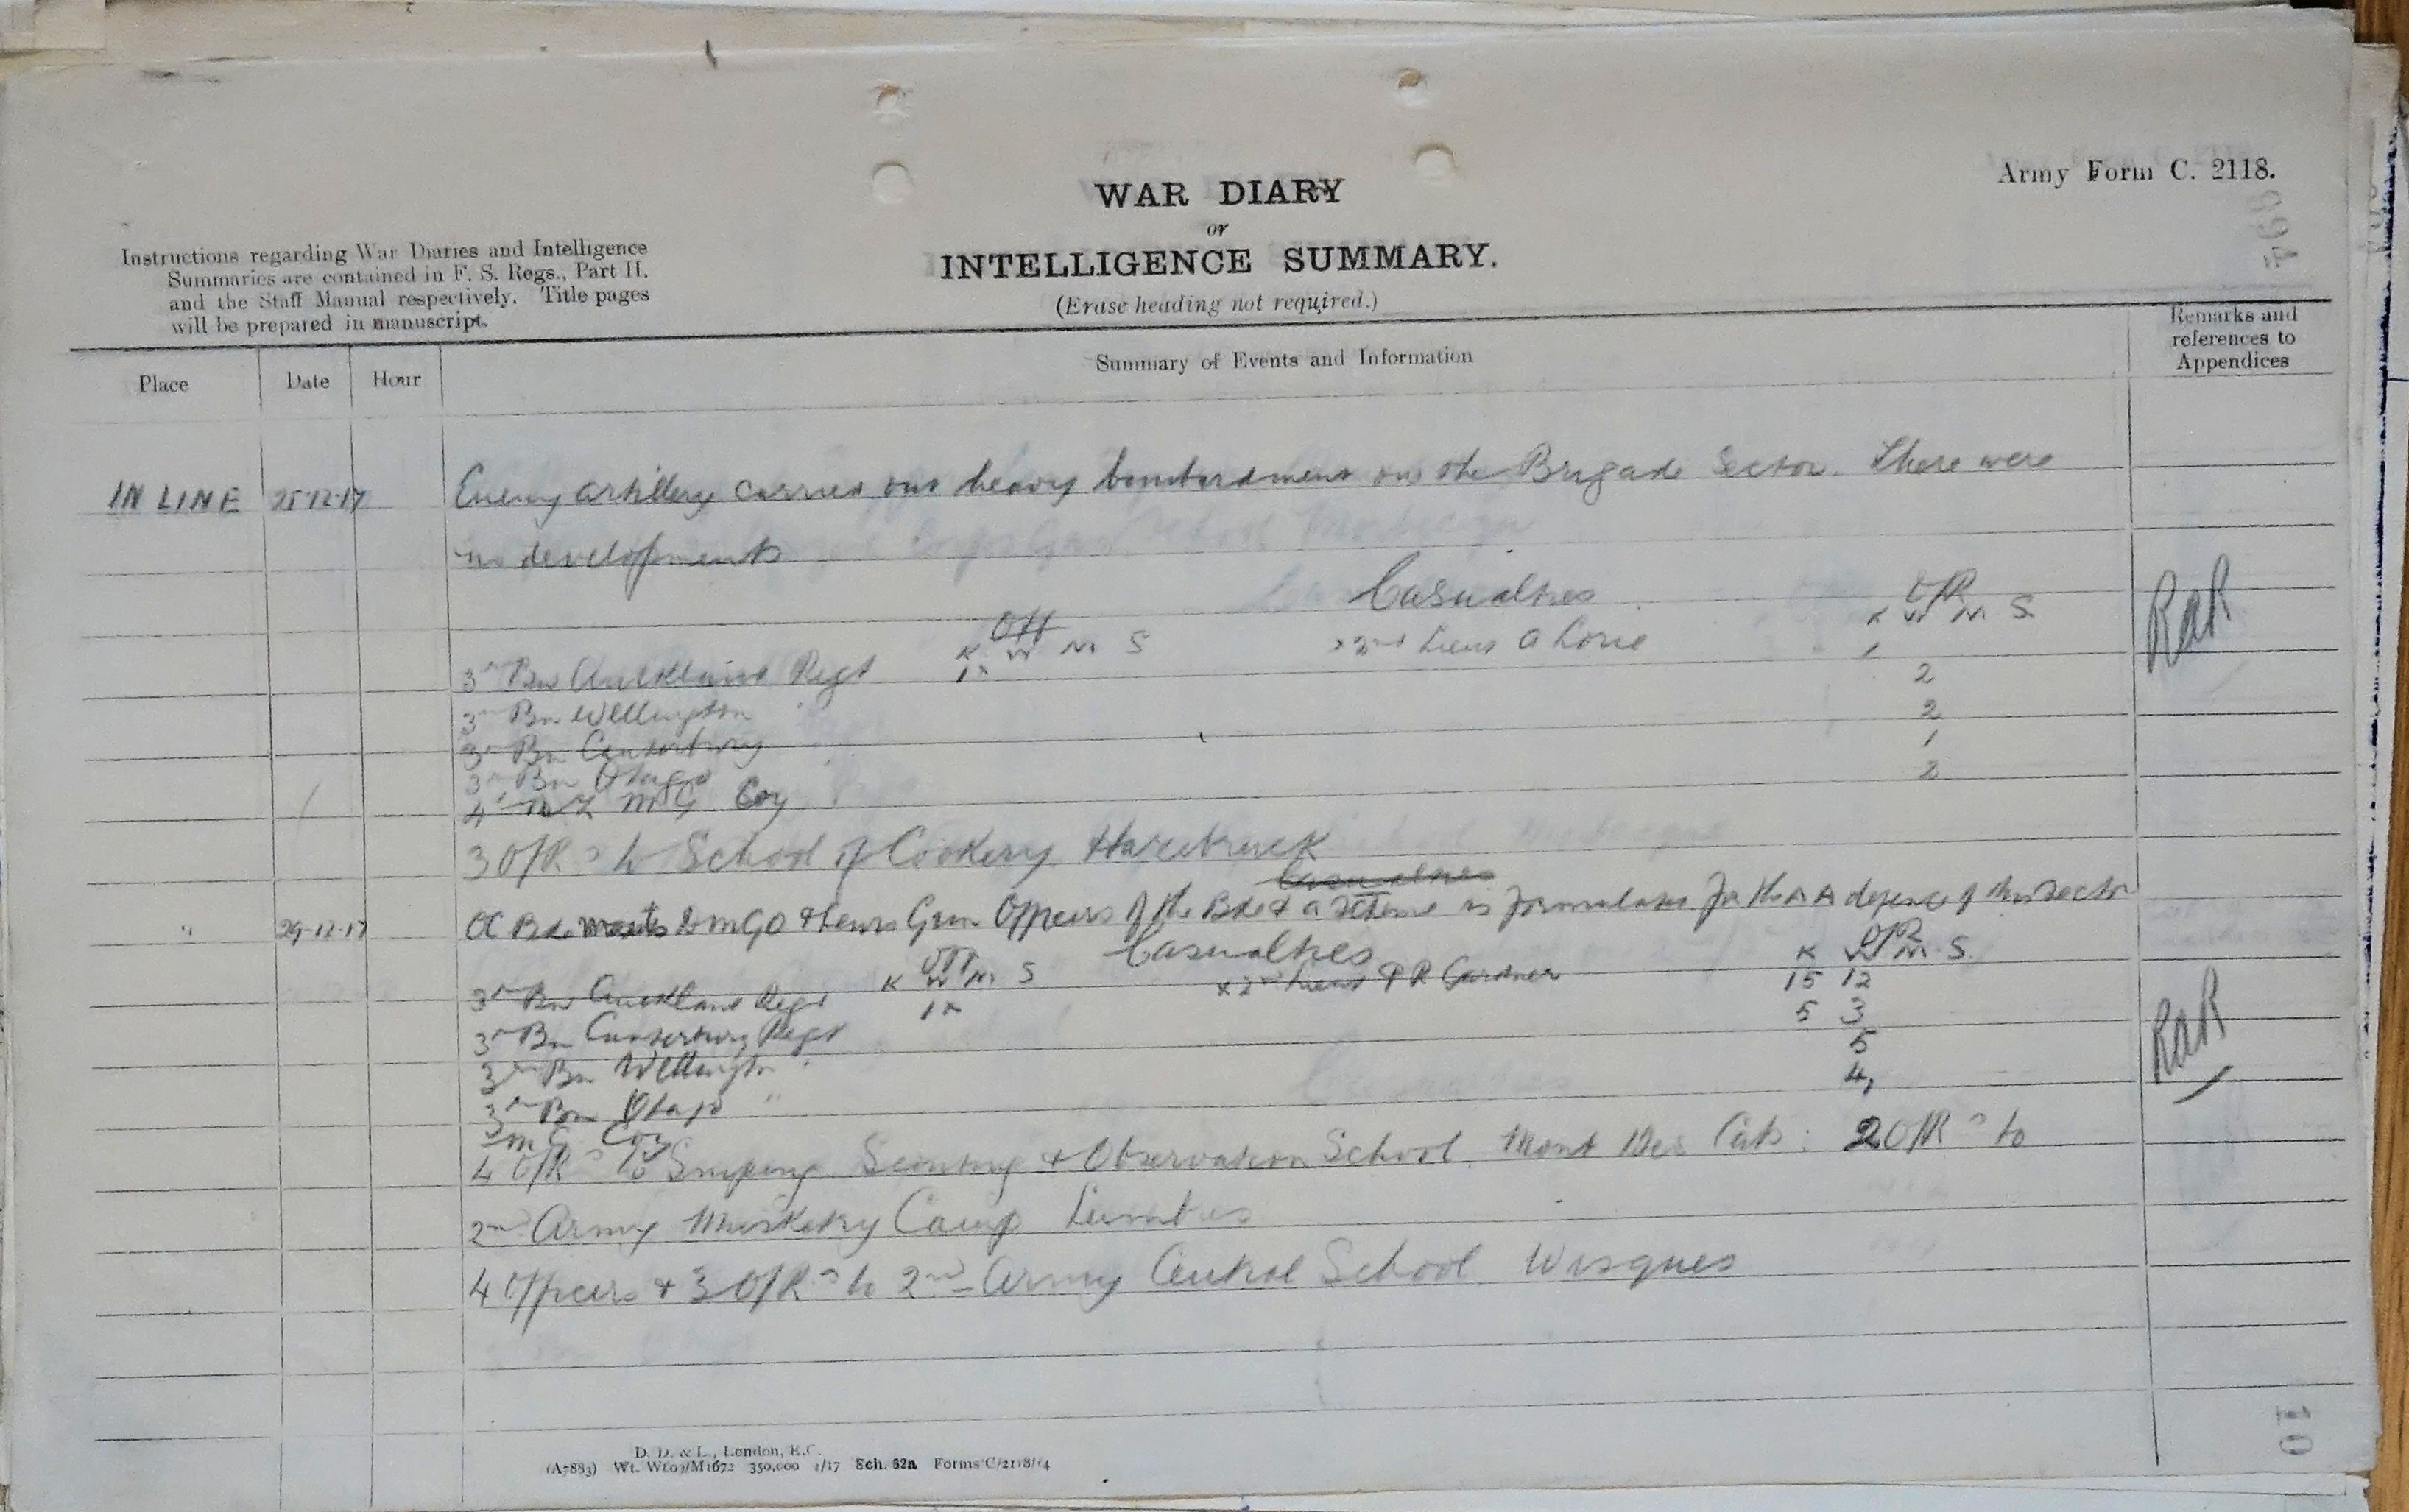 Army Form C. 2118.
WAR DIARY
or
INTELLIGENCE SUMMARY.
(Erase heading not required.)
Instructions regarding War Diaries and Intelligence
Summaries are contained in F. S. Regs., Part II.
and the Staff Manual respectively. Title pages
will be prepared in manuscript.
Place Date Hour Summary of Events and Information Remarks and references to Appendices
IN LINE Enemy artillery carried out heavy bombardment on the Brigade Sector. There were
no developments
Casualties
Off O/R
K W M S K W M S
3rd Bn Auckland Regt 1x x 2nd Lieut 1 2
3rd Bn Wellington " 2
3rd Bn Canterbury " 1
3rd Bn Otago 2
4th NZ MG Coy
3 O/Rs to School of Cookery Hazebruck
Casualties
" 29-12-17 OC Bde meets DMGO & Lewis Gun Officers of the Bde & a scheme is formulated for the AA defence of this Sector
Casualties
Off O/R
K W M S K W M S
3rd Bn Auckland Regt 1x x 2nd Lieut P R Gardner 15 12
3rd Bn Canterbury Regt 5 3
3rd Bn Wellington " 5
3rd Bn Otago " 4
MG Coy
4 O/Rs to Sniping Scouting & Observation School. Mont Des Cats: 2 O/Rs to
2nd Army Musketry Camp Lumbres
4 Officers & 3 O/Rs to 2nd Army Central School. Wisques
RAR
RAR
10
D. D. & L., London, E.C.
(A7883) Wt. W809/M1672 350,000 4/17 Sch. 52a Forms/C/2118/14